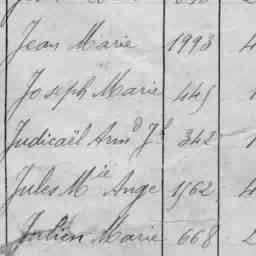 Jean Marie 1993 4
Joseph Marie 445 1
Judicaël Armd Jh 342 1
Jules Mie Ange 1562 4
Julien Marie 668 2